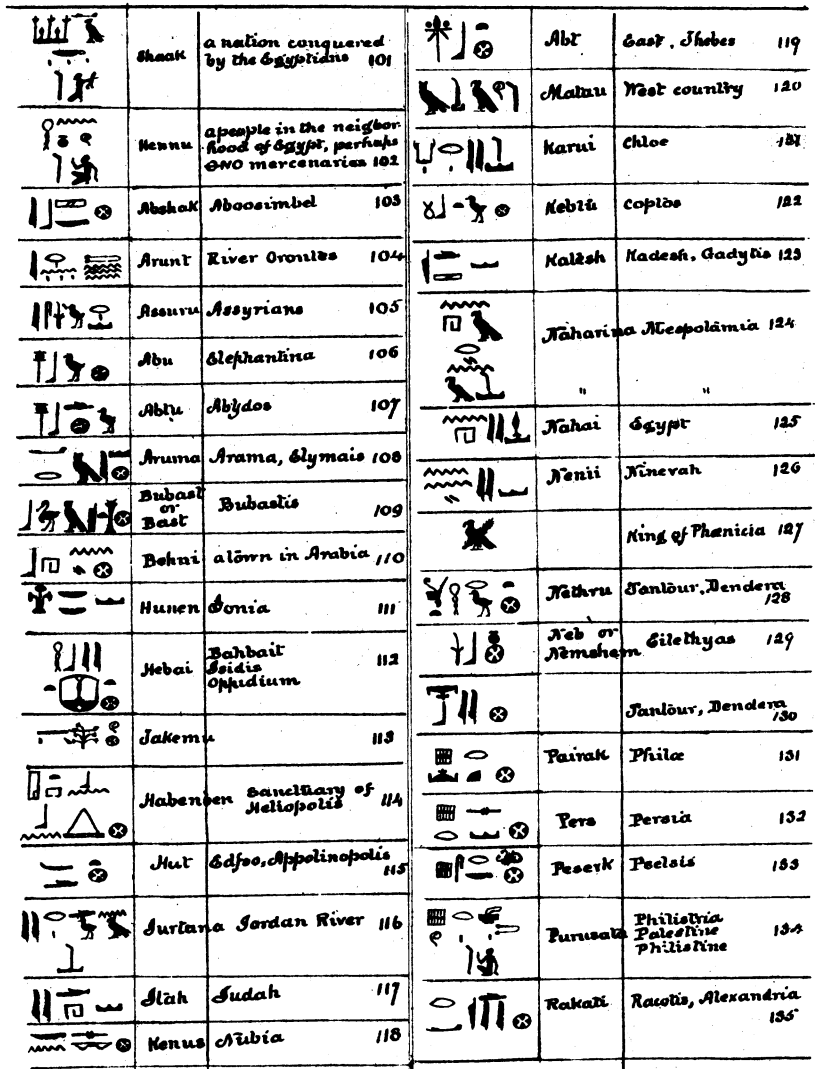 Shaak a nation conquered
by the Egyptians 101
Hennu a people in the neigbor
hood of Egypt, perhaps
mercenaries 102
Abshak Aboosimbel 103
Arunt River Orontes 104
Assuru Assyrians 105
Abu Elephantina 106
Abtu Abydos 107
Aruma Arama, Elymais 108
Bubast
or
Bast Bubastis 109
Behni a town in Arabia 110
Hunen Ionia 111
Hebai Bahbait
Isidis
Oppidium 112
Jakemu 113
Habenben Sanctuary of
Heliopolis 114
Hut Edfoo, Appolinopolis
115
Iurtana Jordan River 116
Itah Judah 117
Kenus Nubia 118
Abt East, Thebes 119
Matau West country 120
Karui Chloe
Kebtu Coptos 122
Katesh Kadesh, Gadytis 123
Naharina Mespolamia 124
" "
Nahai Egypt 125
Nenii Ninevah 126
King of Phœnicia 127
Nethru Tantour, Dendera
128
Neb or
Nemshem Eilethyas 129
Tantour, Dendera
130
Pairak Philæ 131
Pers Persia 132
Peserk Pselsis 133
Purusata Philistria
Palestine
Philistine 134
Rakati Racotis, Alexandria
135